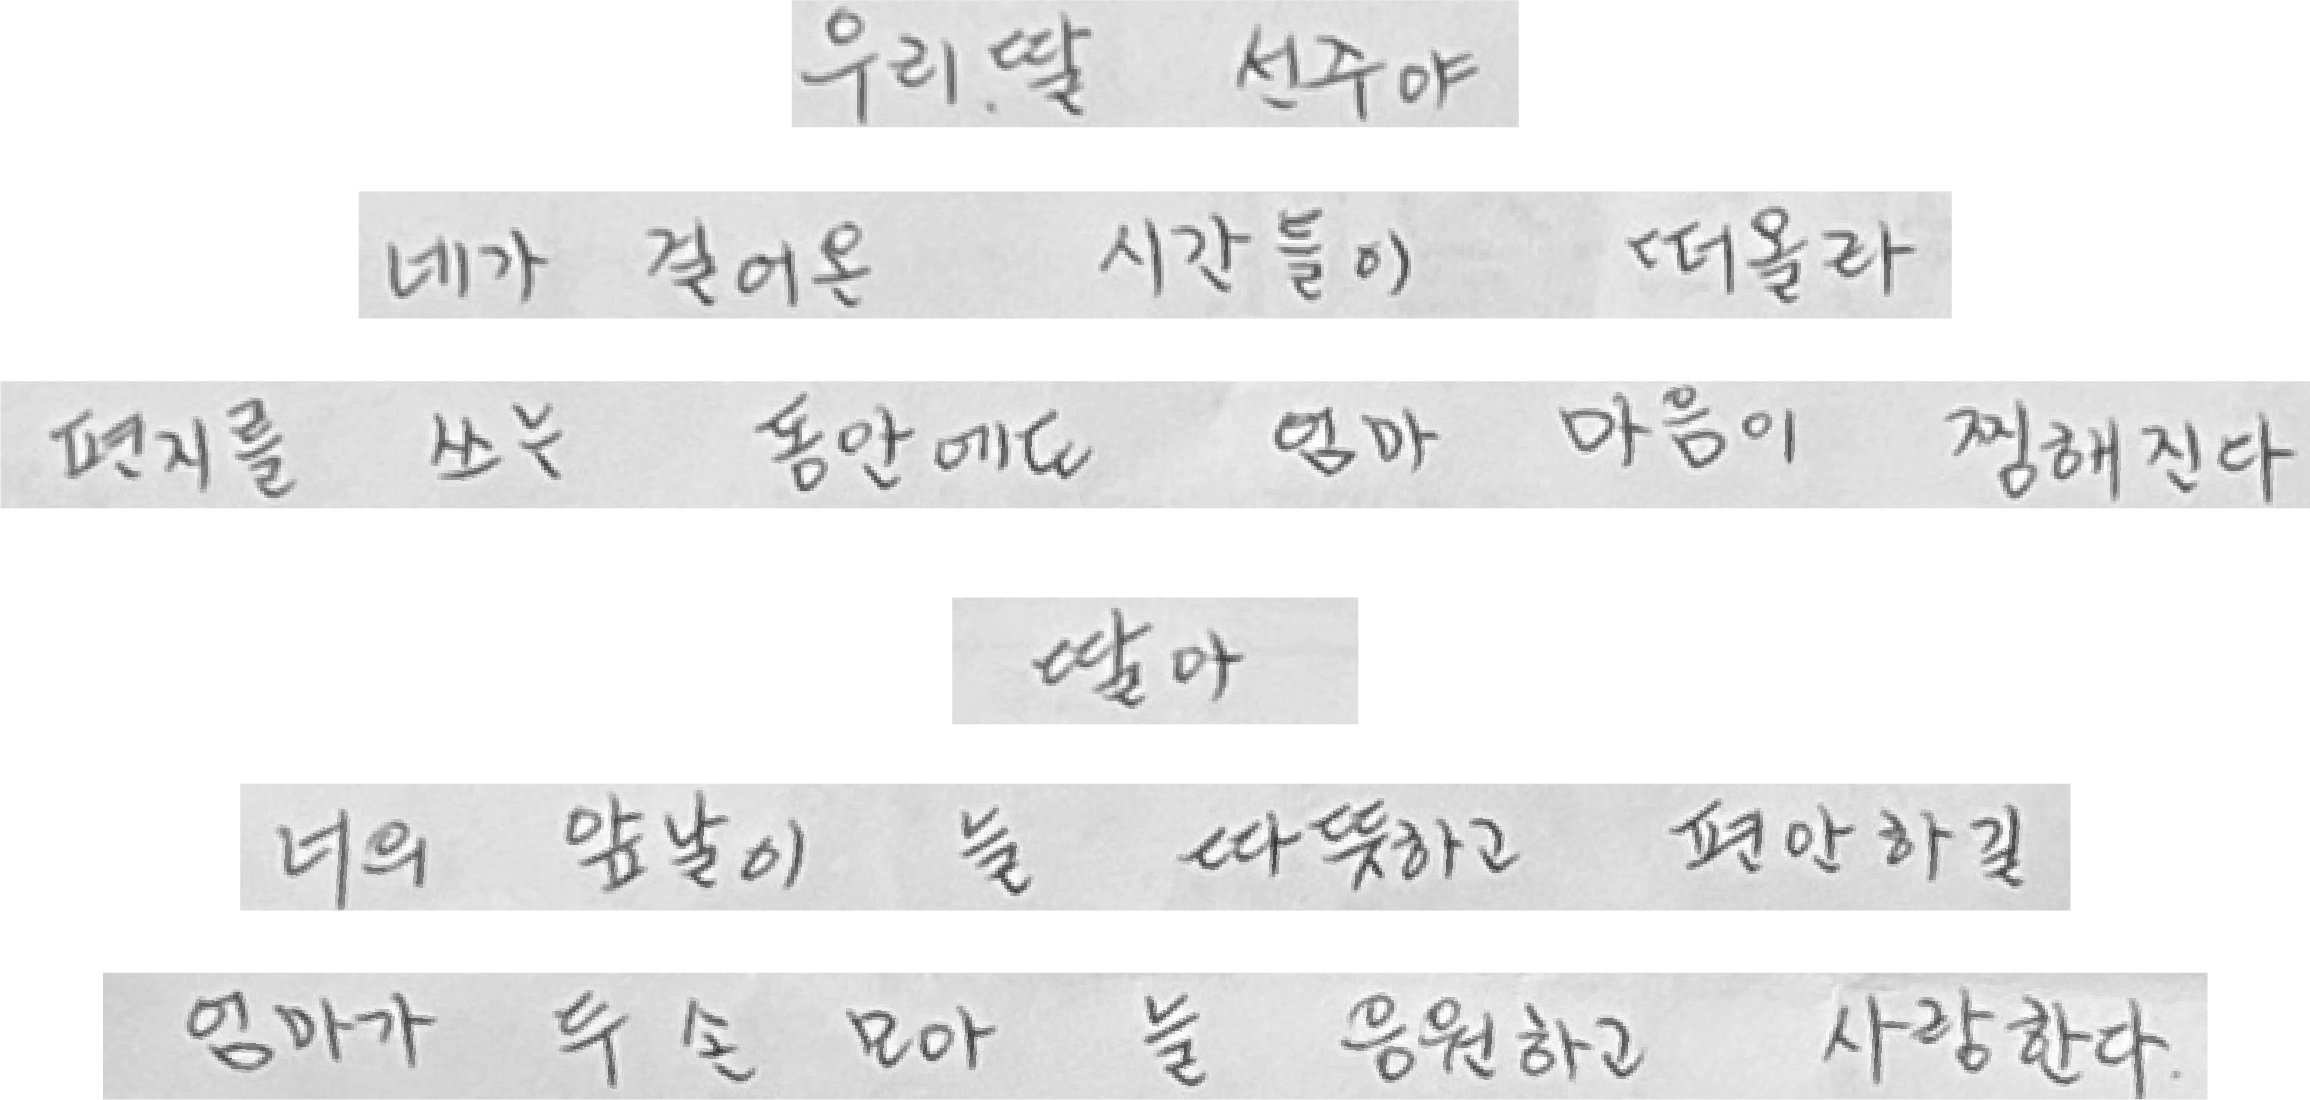 우리.딸 선주야
네가 걸어온 시간들이 떠올라
편지를 쓰는 동안에도 엄마 마음이 찡해진다
딸아
너의 앞날이 늘 따뜻하고 편안하길
엄마가 두 손 모아 늘 응원하고 사랑한다.